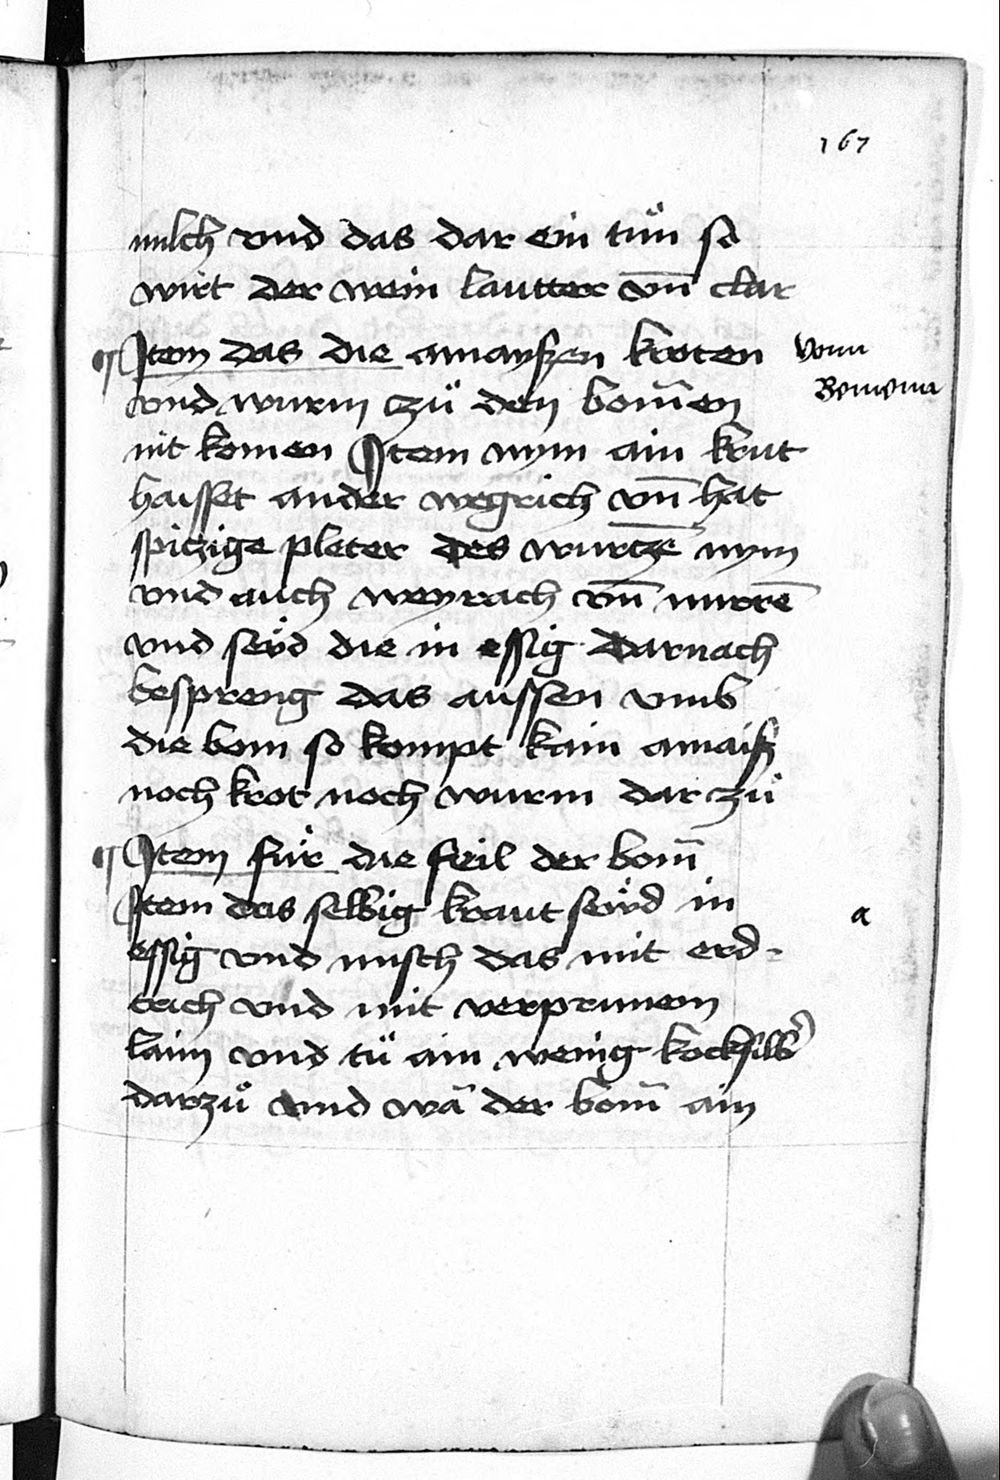 167
milch vnd das dar ein tuͦn so
wirt der wein lautter vn̄ clar
¶ Item das die amayszen kroten
vnd wurm czuͦ den bom̄en
nit komen Item nym ain krut
haisset ander wegrich vn̄ hat
spiczige pleter des wurtzē nym
vnd auch weyrach vn̄ mirrē
vnd seyd die in essig Darnach
bespreng das aussen vmb
die bom so kompt kain amaisz
noch krot noch wurm dar zuͦ
¶ Item fuͤr die feil der bom̄
Item das selbig kraut seyd in
essig vnd misch das mit erd-
trich vnd mit
laim vnd tuͦ ain wenig kocksilb̄
darzuͦ vnd wā der bom̄ ain
vonn
a